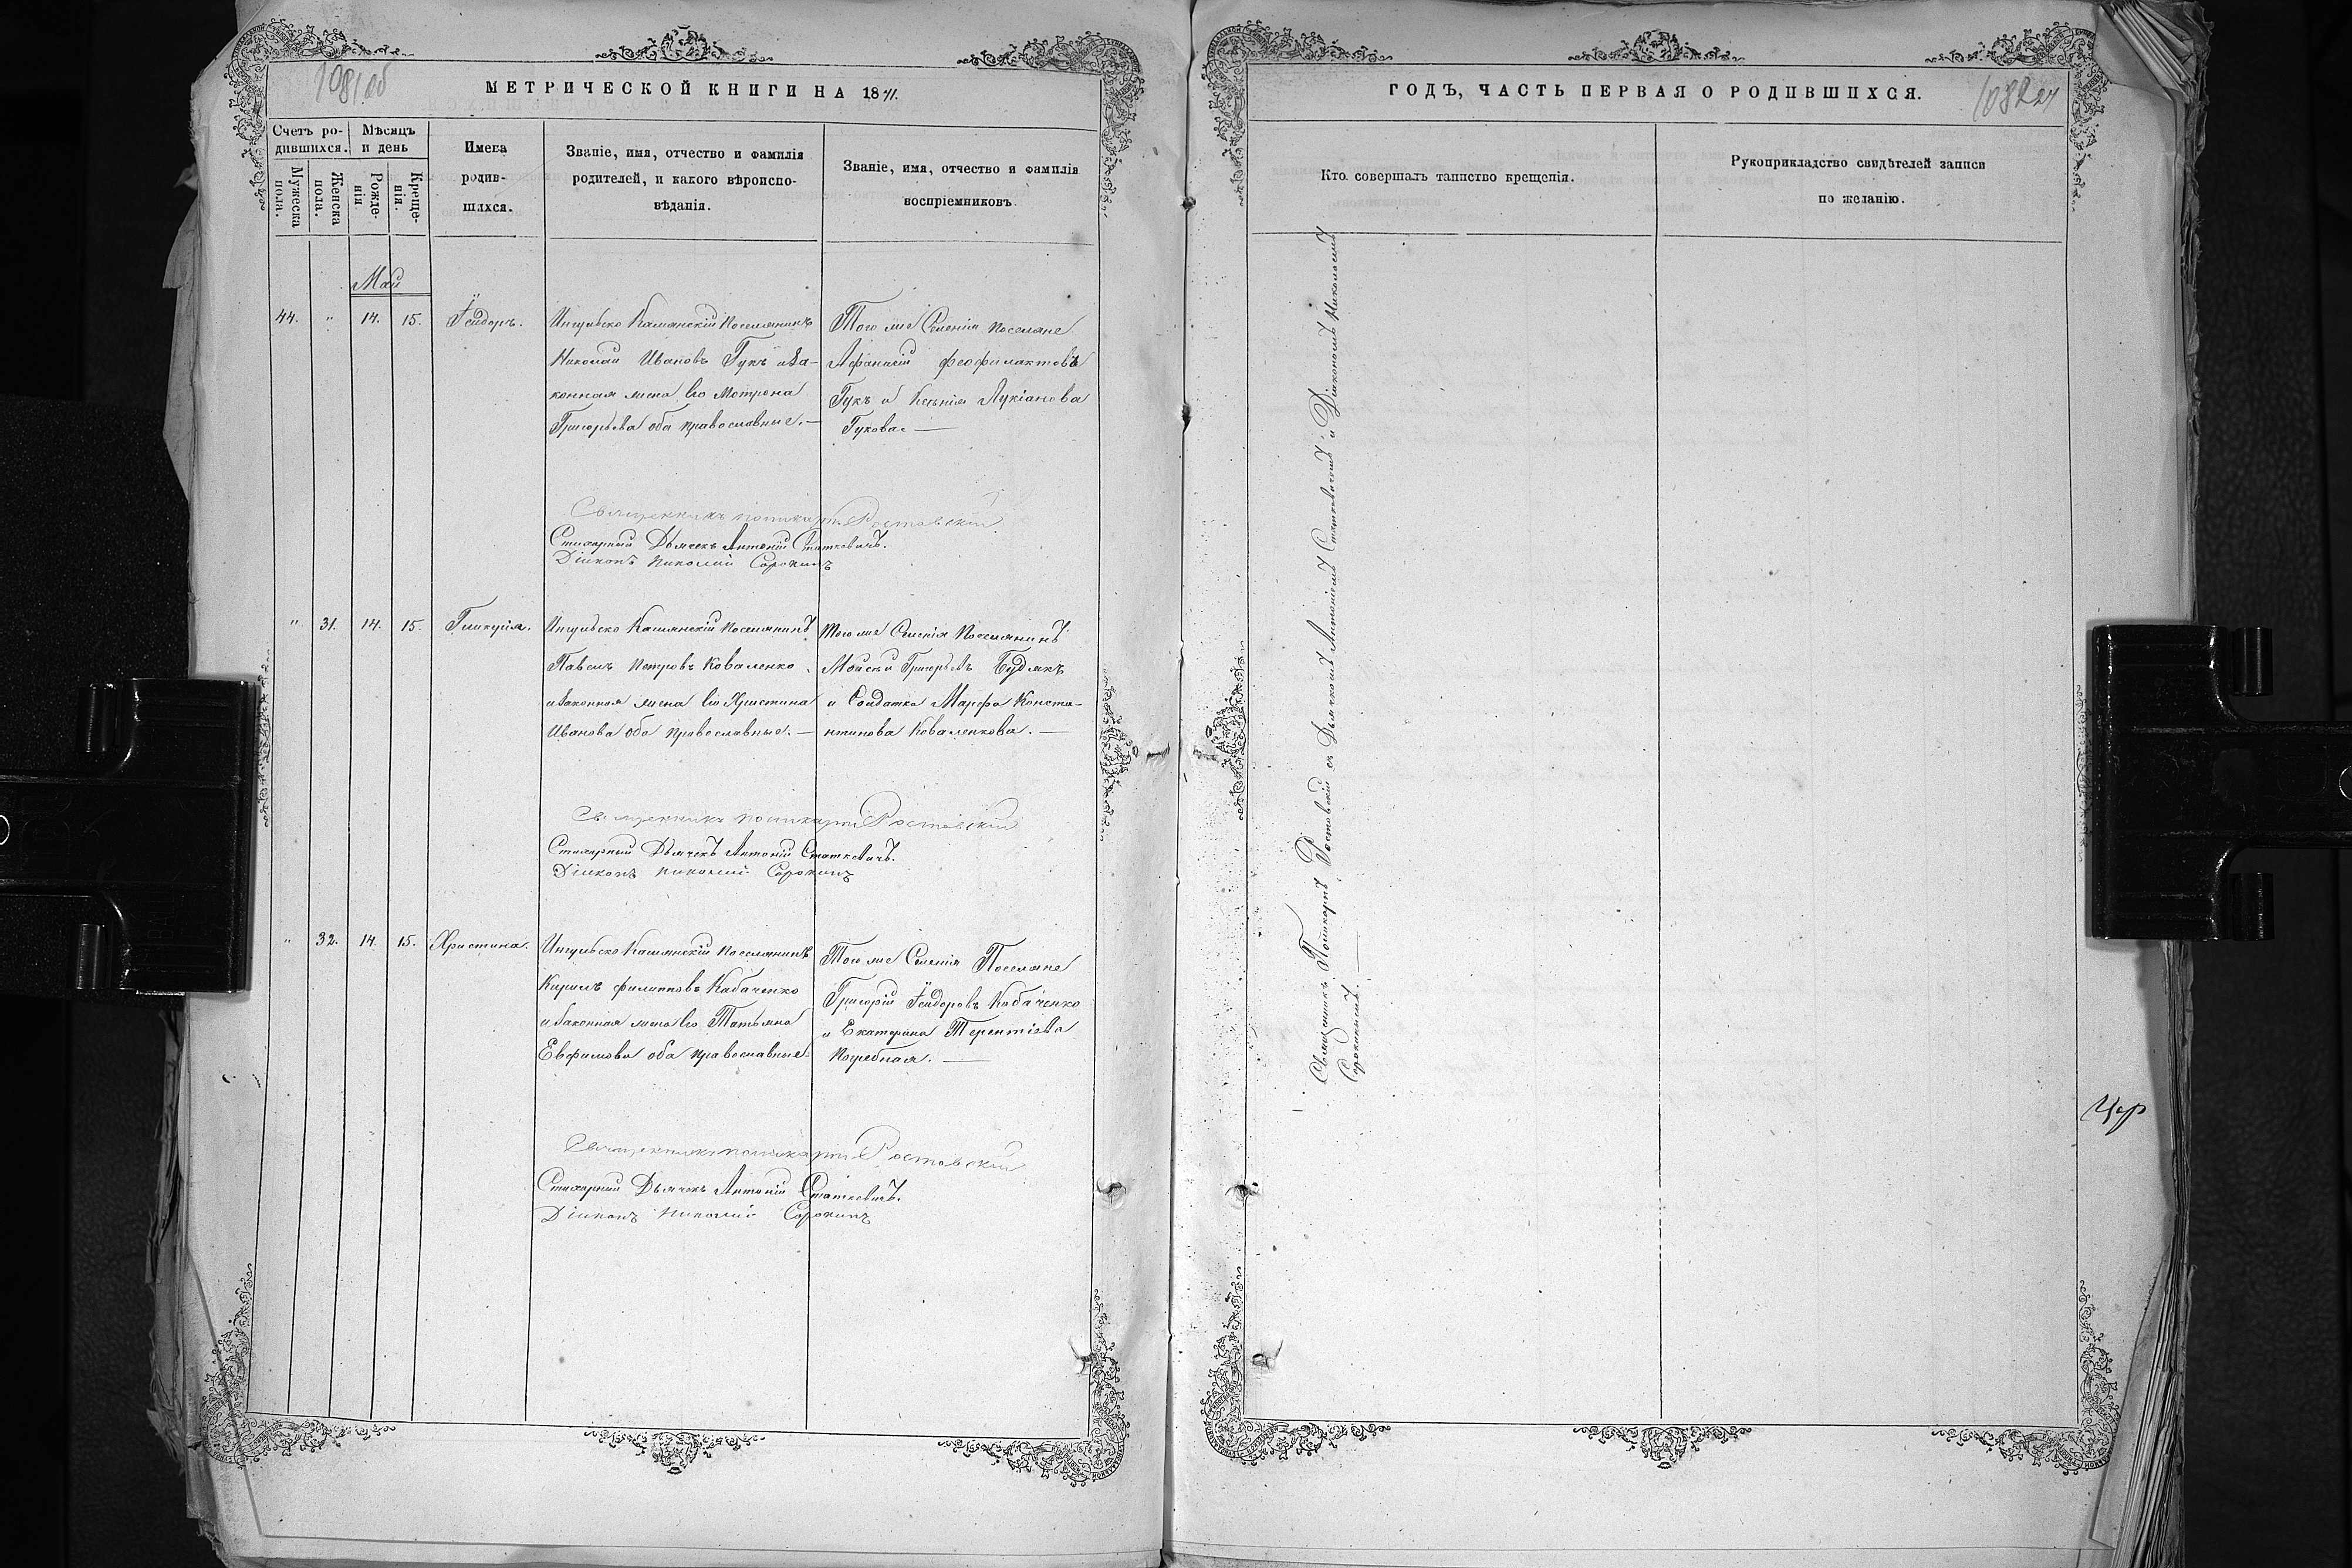 1081об
МЕТРИЧЕСКОЙ КНИГИ НА 1871.
Счетъ ро-
дившихся.
Мѣсяцъ
и день
Мужеска
пола.
Женска
пола.
Рожде-
нія
Креще-
нія.
Имена
родив-
шихся.
Званіе, имя, отчество и фамилія
родителей, и какого вѣроиспо-
вѣданія.
Званіе, имя, отчество и фамилія
воспріемниковъ
Май
44. " 14. 15. Ісидоръ.
Ингульско Каменскій Поселянинъ
Николай Ивановъ Гукъ и За-
конная жена Его Мотрона
Григорьева оба православные. —
Того же Селенія поселяне
Афанасій Феофилактовъ
Гукъ и Ксенія Лукіанова
Гукова. —
Священникъ Поликарпъ Ростовскій
Стихарный Дьячекъ Антоній Статкевичъ.
Діаконъ Николай Сорокинъ
" 31. 14. 15. Гликерія.
Ингульско Каменскій Поселянинъ
Павелъ Петровъ Коваленко
и Законная жена Его Христина
Иванова оба православные. —
Того же Селенія Поселянинъ
Мойсей Григорьевъ Будякъ
и Солдатка Марфа Конста-
нтинова Коваленкова. —
Священникъ Поликарпъ Ростовскій
Стихарный Дьячекъ Антоній Статкевичъ.
Діаконъ Николай Сорокинъ
" 32. 14. 15. Христина.
Ингульско Каменскій Поселянинъ
Кирилъ Филиповъ Кабаченко
и Законная жена Его Татьяна
Евфимова оба православные
Того же Селенія Поселяне
Григорій Ісидоровъ Кабаченко
и Екатерина Терентіева
Погребная. —
Священникъ Поликарпъ Ростовскій
Стихарный Дьячекъ Антоній Статкевичъ.
Діаконъ Николай Сорокинъ
ГОДЪ, ЧАСТЬ ПЕРВАЯ О РОДИВШИХСЯ.
1082
Кто совершалъ таинство крещенія.
Рукоприкладство свидѣтелей записи
по желанію.
Священникъ Поликарпъ Ростовскій съ Дьячкомъ Антоніемъ Статкевичемъ и Діакономъ Николаемъ
Сорокинымъ. —